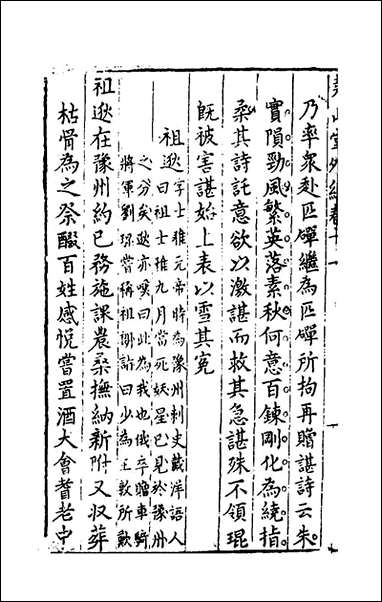 堯山堂外紀卷十一
乃率衆赴匹磾繼為匹磾所拘再贈諶詩云朱
實隕勁風繁英落素秋何意百鍊剛化為繞指
柔其詩託意欲以激諶而救其急諶殊不領琨
旣被害諶始上表以雪其寃
祖逖字士稚元帝時為豫州刺史戴洋語人
曰祖士稚九月當死妖星已見於豫州
之分矣逖亦嘆曰此為我也俄卒贈車騎
將軍劉琮嘗稱祖謝詁曰少為王敦所歎
祖逖在豫州約已務施課農桑撫納新附又収葬
枯骨為之祭醊百姓感悅嘗置酒大會耆老中